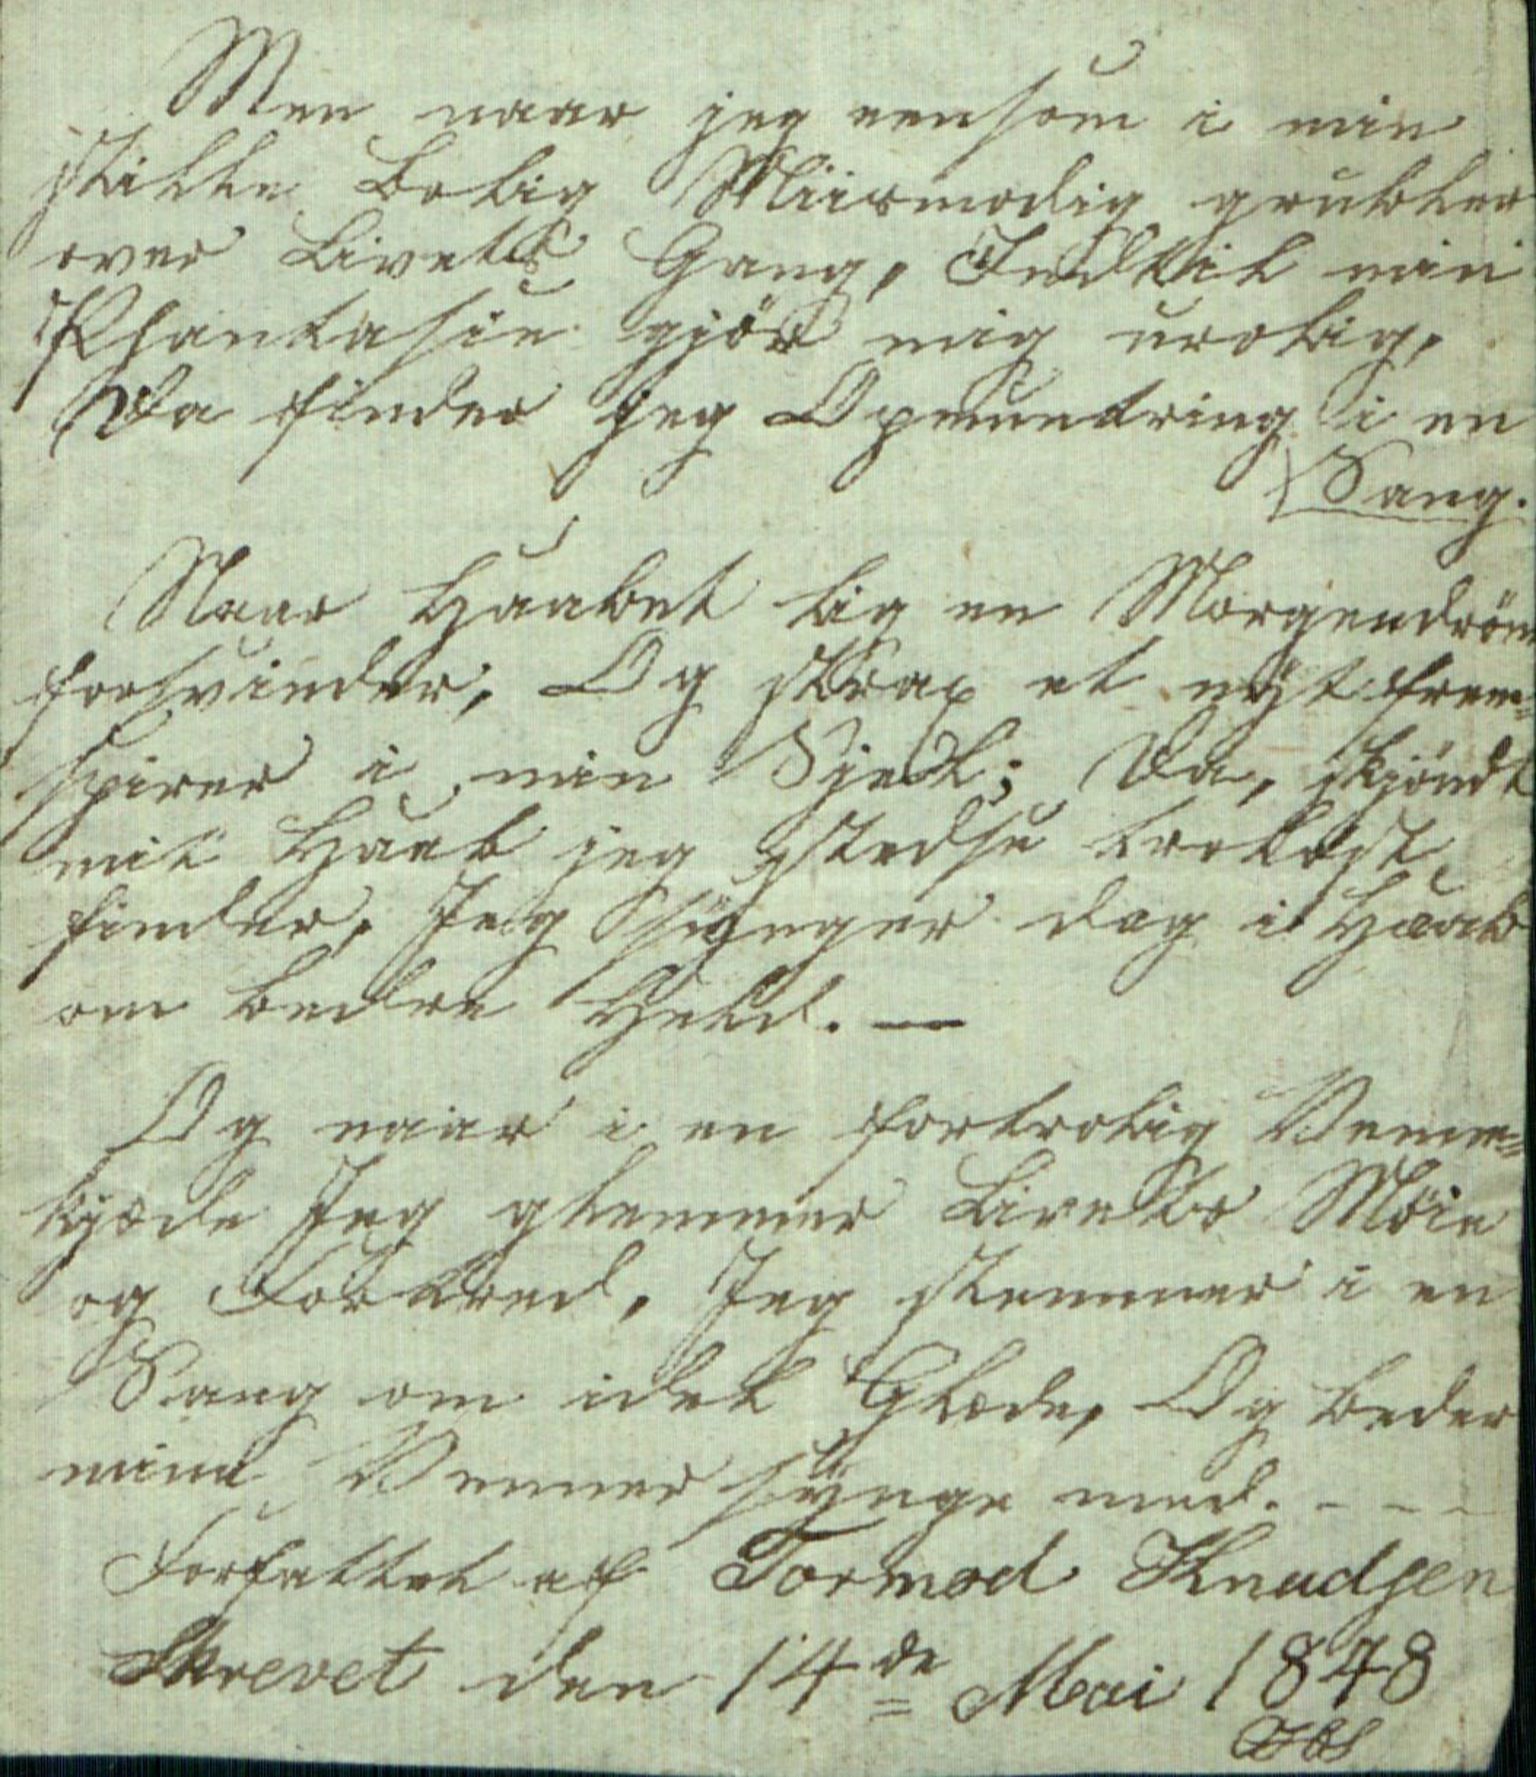 Men naar jeg eensom i min
stille Bolig Miismodig grubler
over Livets Gang, Indtil min
Phantasie gjör mig urolig,
Da finder jeg Opmuntring i en
Sang.
Naar Haabet lig en Morgendröm
forsvinder, Og strax et nyt frem=
spirer i min Sjæl; Da, skjöndt
mit Haab jeg stedse trolöst
finder, Jeg synger dog i Haab
om bedre Held. —
Og naar i en fortrolig Venne=
kjæde Jeg glemmer Livets Möie
og Fortred, Jeg stemmer i en
Sang om idel Glæde, Og beder
mine Venner synge med. - - -
Forfattet af Tormod Knudsen
Skrevet den 14de Mai 1848